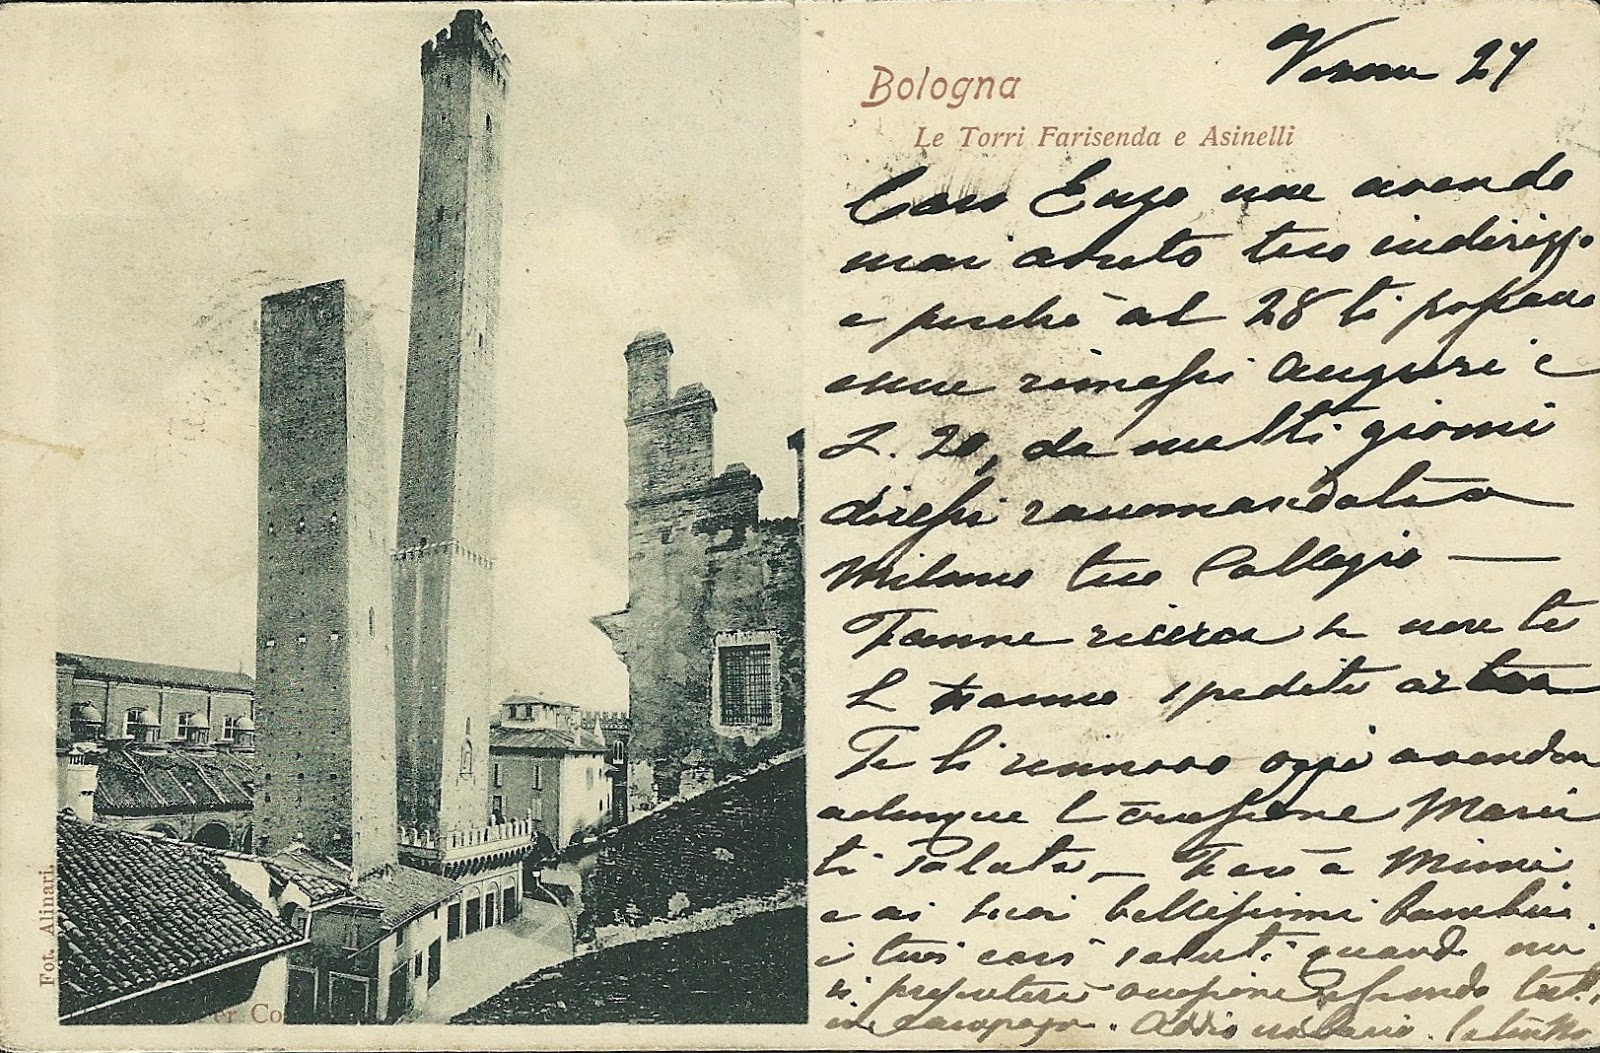 Verona 27
Bologna
Le Torri Farisenda e Asinelli
Caro Enzo non avendo
mai avuto tuo indirizzo
e perchè al 28 ti possano
rimessi auguri e
L. 20, da molti giorni
diressi raccomandata a
Milano tuo Collegio —
Fanne ricerca se non te
l'hanno spedita
Te li rinnovo oggi avendone
adunque l'occasione Maria
ti saluta, — Farò a Mimì
e ai suoi bellissimi bambini
i tuoi cari saluti quando mi
si presenterà occasione essendo tutti
in campagna. Addio
Fot. Alinari.
er Co